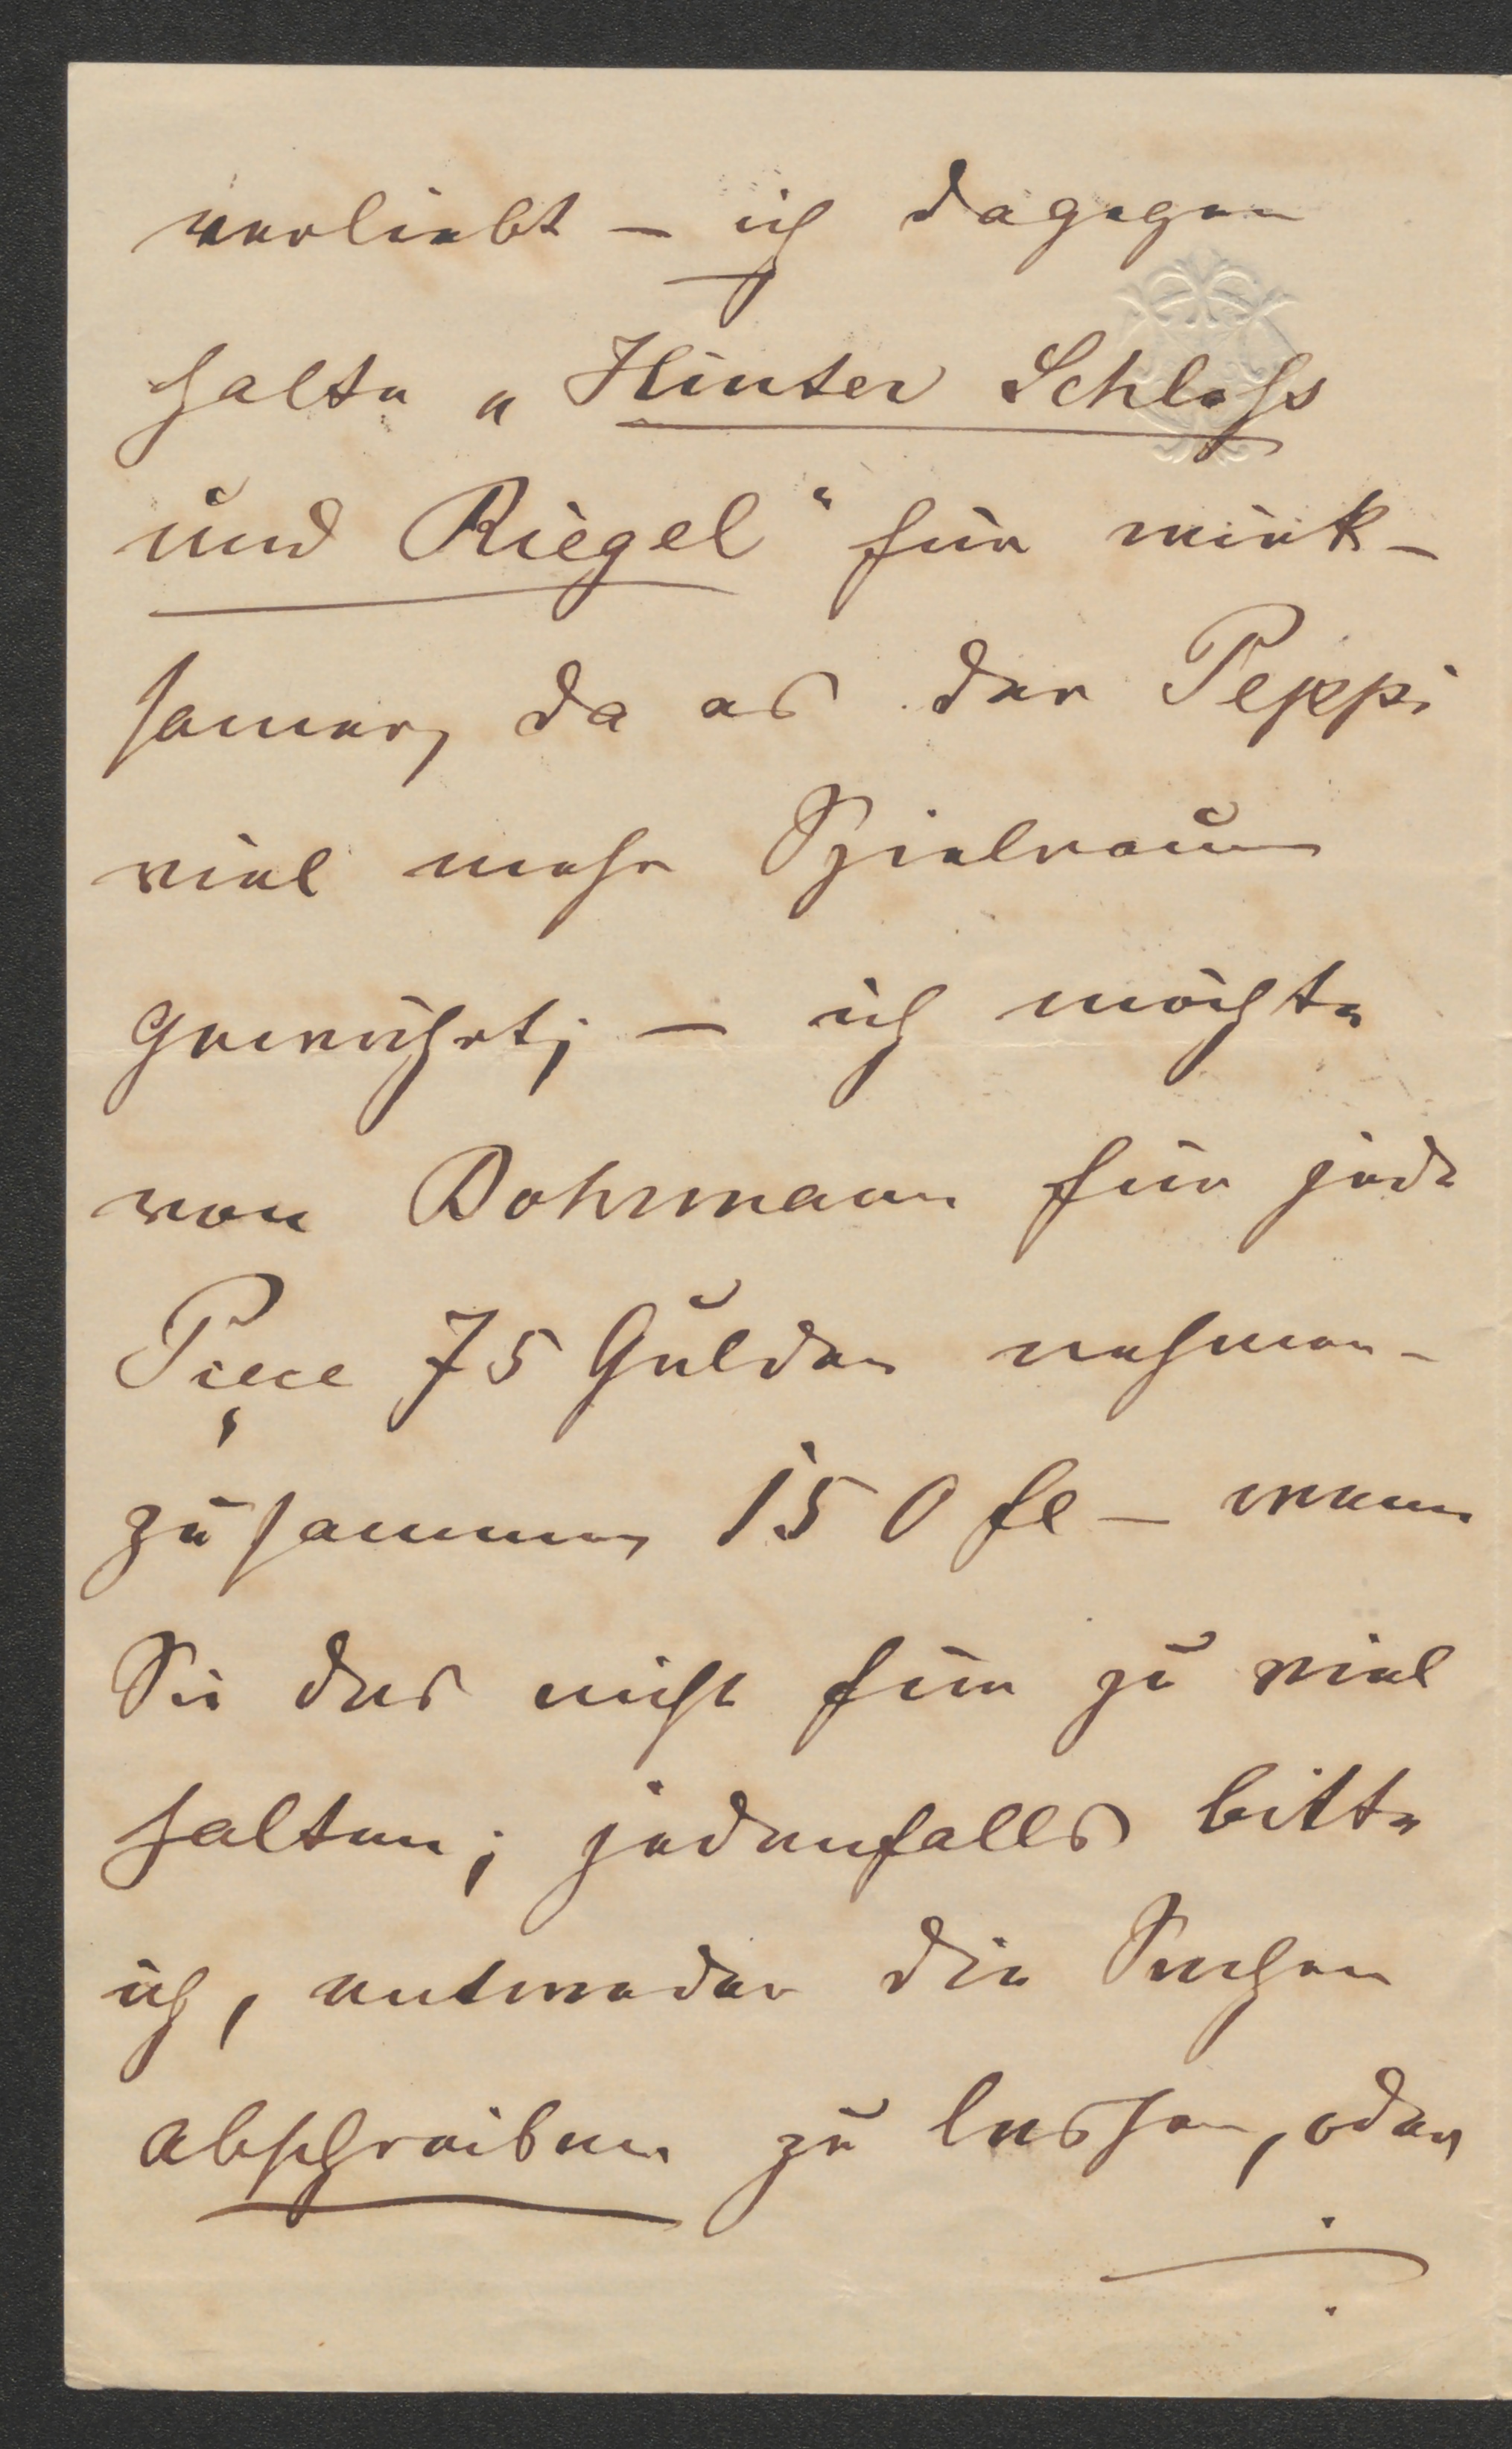 verliebt – ich dagegen
halte „Hinter Schloss
und Riegel“ für wirk-
samer, da es der Peppi
viel mehr Spielraum
gewährt; – ich möchte
von Dohrmann für jede
Piece 75 Gulden nehmen –
zusammen 150 fl – wenn
Sie das nicht für zu viel
halten; jedenfalls bitte
ich, entweder die Sachen
abschreiben zu lassen, oder